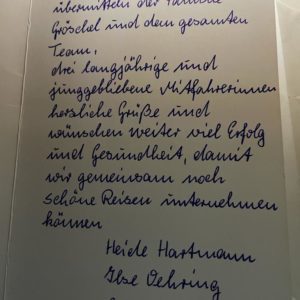 übermitteln der Familie
Gröschel und dem gesamten
Team,
drei langjährige und
junggebliebene Mitfahrerinnen
herzliche Grüße und
wünschen weiter viel Erfolg
und Gesundheit, damit
wir gemeinsam noch
schöne Reisen unternehmen
können
Heide Hartmann
Ilse Oehring